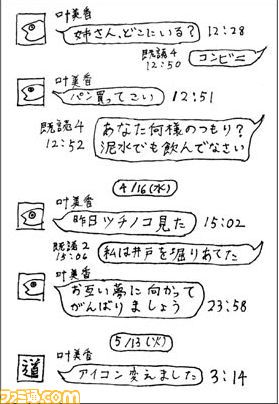 叶美香
姉さん、どこにいる?
12:28
既読4
12:50
コンビニ
叶美香
パン買ってこい
12:51
既読4
12:52
あなた何様のつもり?
泥水でも飲んでなさい
4/16(水)
叶美香
昨日ツチノコ見た
15:02
既読2
15:06
私は井戸を掘りあてた
叶美香
お互い夢に向かって
がんばりましょう
23:58
5/13(火)
叶美香
道
アイコン変えました
3:14
ファミ通.com